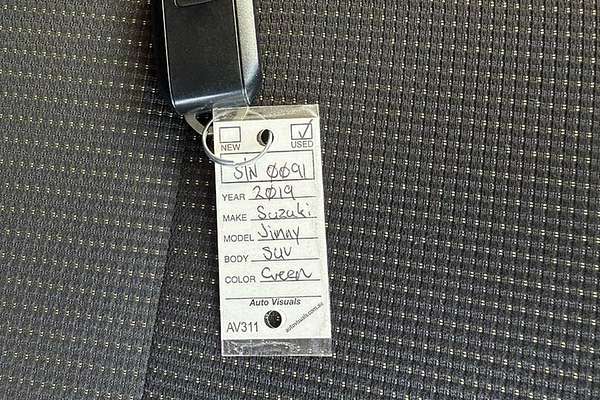 NEW USED
S/N 0091
YEAR 2019
MAKE Suzuki
MODEL Jimny
BODY SUV
COLOR Green
Auto Visuals
AV311 autovisuals.com.au